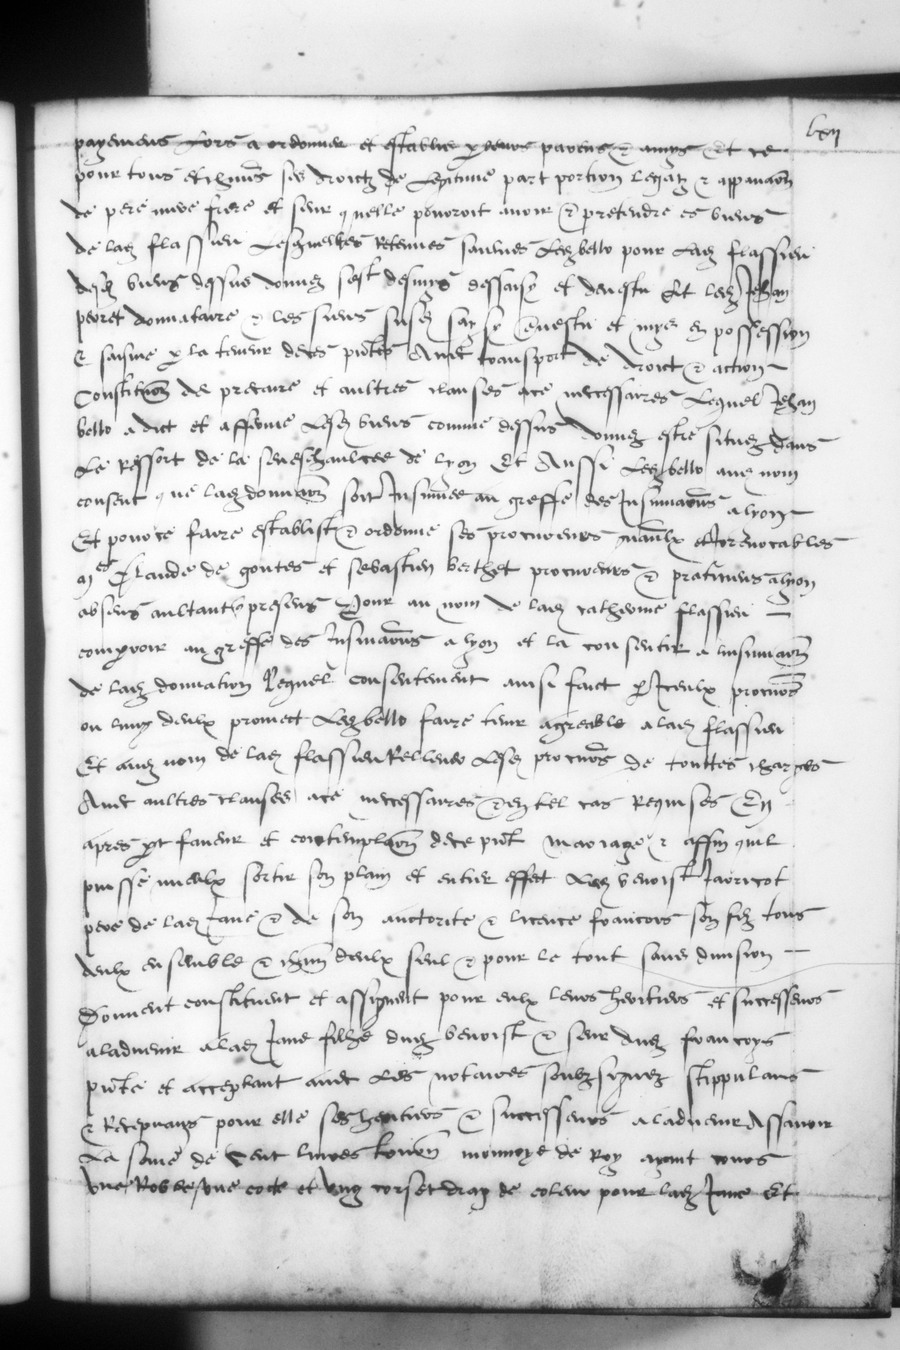 lxii
payemens lors a ordonner et establir p leurs parens & amys Et ce
pour tous et chuns ses droictz de legitime part portion legatz & appanaon
de pere mere frere et seur quelle pouroit avoir & pretendre es biens
de lad flassieu Lesquelles Retenues saulves Led bello pour Lad flassieu
desd biens dessus donnez sest desmys dessaisy et devestu Et led Jehan
peoret donnataire & les siens saisy & investu et mys en possession
& saisine p la teneur de ces pntes Avec transport de droict & action
Constitution de precaire et aultres clauses ace necessaires Lequel Jehan
bello a dict et afferme Lesd biens comme dessus donnez estre situez dans
Le Ressort de la seneschaulcee de lyon Et Aussi Led bello aud nom
consent que lad donnaon soit Insinuee au greffe des Insinuaons a lyon
Et pour ce faire establist & ordonne ses procureurs et Irrevocables
mes Claude de goutes et sebastien berthet procureurs & praticiens a lyon
absens aultant presens Pour au nom de lad catherine flassieu
comparoir au greffe des Insinuaons a lyon et la consentir a linsinuaon
de lad donnation Lequel consentement ainsi faict p Iceulx procurs
ou lung deulx promect Led bello faire tenir agreable a lad flassieu
Et aud nom de lad flassieu Relleve Lesd procurs de touttes charges
Avec aultres clauses ace necessaires & en tel cas Requises En
apres faveur et contemplaon de ce pnt mariage & affin quil
puisse mieulx sortir son plain et entier effect Led benoist Jarricot
pere de lad Jane & de son auctorite & licence francoys son filz tous
deulx ensemble & chun deulx seul & pour le tout sans division
Donnent constituent et assignent pour eulx leurs heritiers et successeurs
aladvenir a lad Jane filhe dud benoist & seur dud francoys
pnte et acceptant avec Les notaires soubzsignez stippulans
& Recepvans pour elle ses heritiers & successeurs aladvenir Assavoir
La some de Cent livres tourn monnoye de Roy ayant cours
Une Robbe / une cotte et ung corset drap de coleur pour lad Jane Et